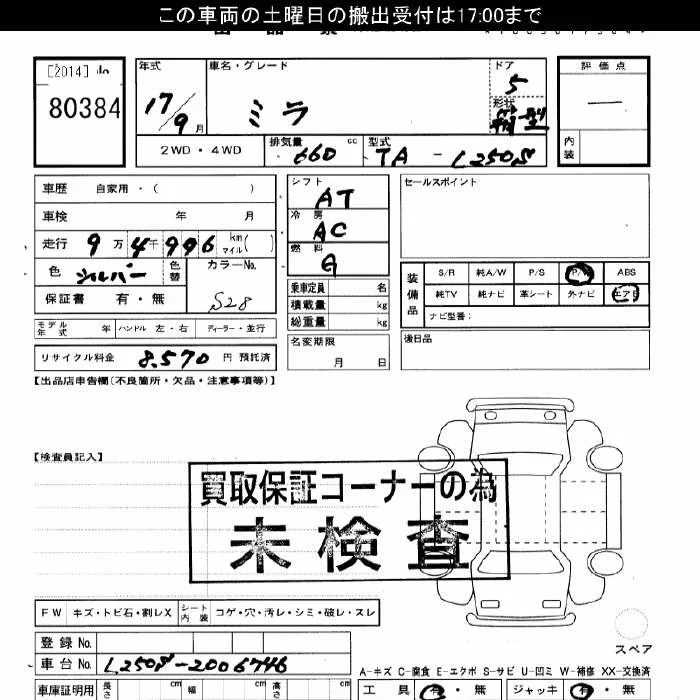 この車両の土曜日の搬出受付は17:00まで
[2014]
80384
年式
17/9月
車名・グレード
ミラ
ドア
5
形状
箱型
評価点
—
内装
2WD・4WD
排気量
660 cc
型式
TA - L250S
車歴 自家用・( )
車検 年 月
走行 9万4千996 km マイル( )
色 シルバー 色替
カラーNo.
S28
保証書 有・無
シフト
AT
冷房
AC
燃料
G
乗車定員 名
積載量 kg
総重量 kg
セールスポイント
装備品
S/R 純A/W P/S P/W ABS
純TV 純ナビ 革シート 外ナビ エアB
ナビ型番:
モデル年式 年 ハンドル 左・右 ディーラー・並行
名変期限
月 日
後日品
リサイクル料金 8,570 円 預託済
【出品店申告欄(不良箇所・欠品・注意事項等)】
【検査員記入】
買取保証コーナーの為
未検査
FW キズ・トビ石・割レX シート内装 コゲ・穴・汚レ・シミ・破レ・スレ
スペア
登録No.
車台No. L250S-2006746
A-キズ C-腐食 E-エクボ S-サビ U-凹ミ W-補修 XX-交換済
車庫証明用 長さ cm 幅 cm 高さ cm
工具 有・無 ジャッキ 有・無